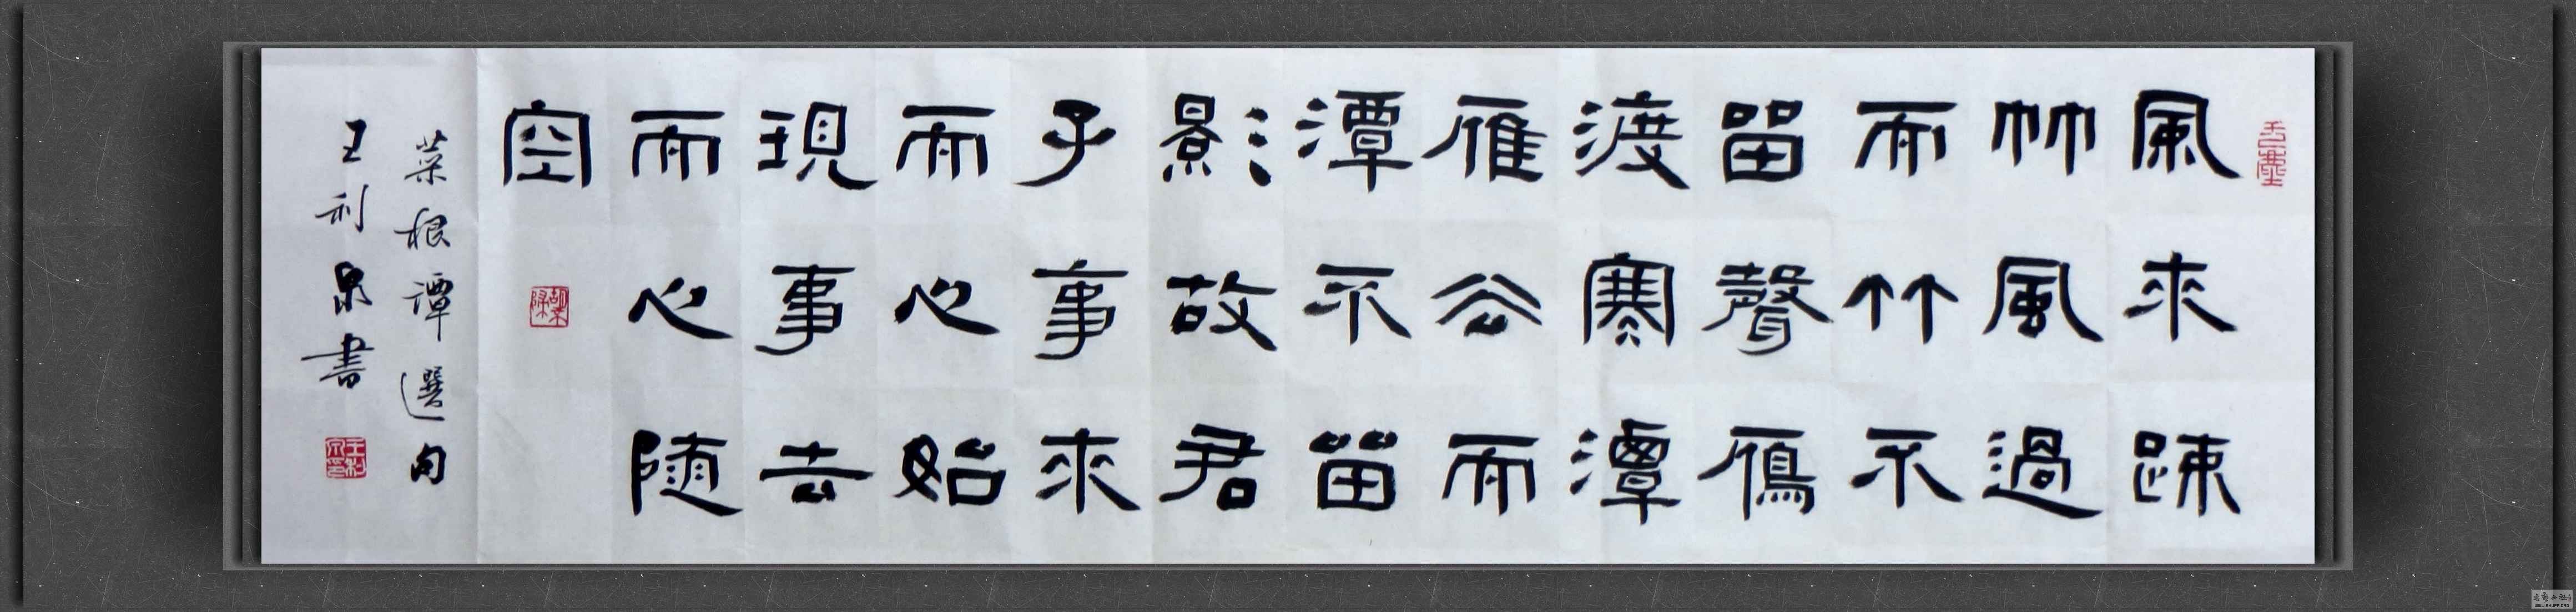 風來疎
竹風過
而竹不
留聲鴈
渡寒潭
雁去而
潭不留
影故君
子事來
而心始
現事去
而心随
空
菜根譚選句
王利泉書
王利泉印